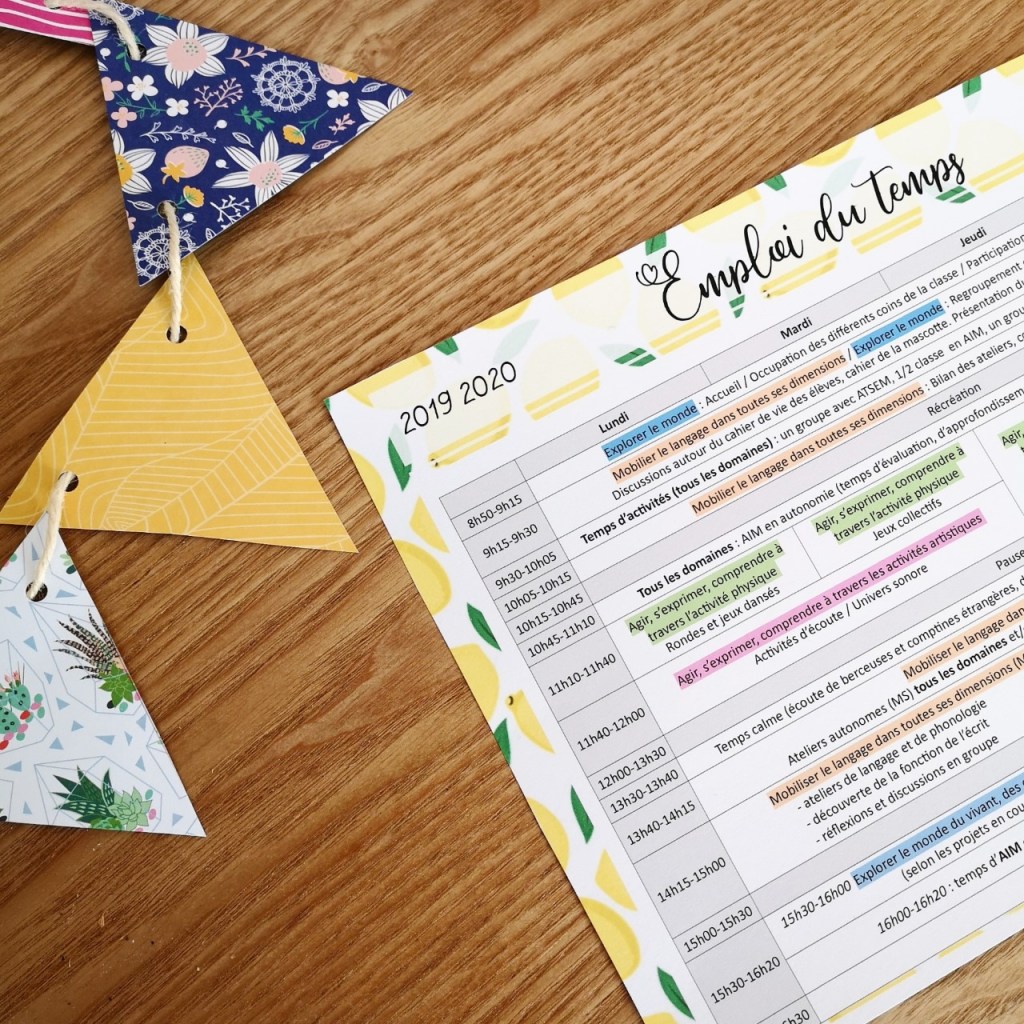 Emploi du Temps
2019 2020
Lundi
Mardi
Jeudi
8h50-9h15
Explorer le monde : Accueil / Occupation des différents coins de la classe / Participation
9h15-9h30
Mobilier le langage dans toutes ses dimensions / Explorer le monde : Regroupement
Discussions autour du cahier de vie des élèves, cahier de la mascotte. Présentation du
9h30-10h05
Temps d'activités (tous les domaines) : un groupe avec ATSEM, 1/2 classe en AIM, un
10h05-10h15
Mobilier le langage dans toutes ses dimensions : Bilan des ateliers,
10h15-10h45
Récréation
10h45-11h10
Tous les domaines : AIM en autonomie (temps d'évaluation,
11h10-11h40
Agir, s'exprimer, comprendre à
travers l'activité physique
Rondes et jeux dansés
Agir, s'exprimer, comprendre à
travers l'activité physique
Jeux collectifs
Agir,
11h40-12h00
Agir, s'exprimer, comprendre à travers les activités artistiques
Activités d'écoute / Univers sonore
12h00-13h30
Pause
13h30-13h40
Temps calme (écoute de berceuses et comptines étrangères,
13h40-14h15
Mobiliser le langage dans
Ateliers autonomes (MS) tous les domaines et/
14h15-15h00
Mobiliser le langage dans toutes ses dimensions
- ateliers de langage et de phonologie
- découverte de la fonction de l'écrit
- réflexions et discussions en groupe
15h00-15h30
15h30-16h20
15h30-16h00 Explorer le monde du vivant, des
(selon les projets en
16h00-16h20 : temps d'AIM